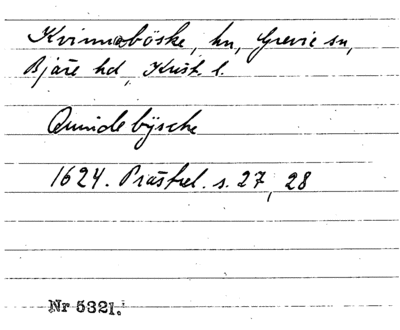 Kvinnaböske, hn, Grevie sn,
Bjäre hd, Krist. l.
Quindebÿsche
1624. Prästrel. s. 27, 28
Nr 5321.